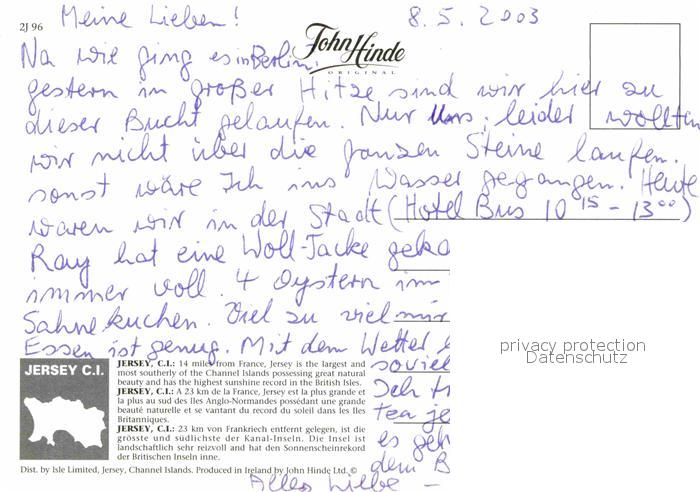 Meine Lieben! 8.5.2003
2J 96
John Hinde
ORIGINAL
Na wie ging es in Berlin,
gestern in großer Hitze sind wir hier zu
dieser Bucht gelaufen. Nur Uns, leider wollten
wir nicht über die ganzen Steine laufen.
sonst wäre Ich ins Wasser gegangen. Heute
waren wir in der Stadt (Hotel Bus 10 15 - 13 00)
Ray hat eine Woll-Jacke geka
immer voll. 4 Oystern im
Sahnekuchen. Viel zu viel mir
Essen ist genug. Mit dem Wetter
soviel
Ich
tea je
es geh
dem B
Alles Liebe -
JERSEY C.I.
JERSEY, C.I.: 14 miles from France, Jersey is the largest and
most southerly of the Channel Islands possessing great natural
beauty and has the highest sunshine record in the British Isles.
JERSEY, C.I.: A 23 km de la France, Jersey est la plus grande et
la plus au sud des Iles Anglo-Normandes possédant une grande
beauté naturelle et se vantant du record du soleil dans les Iles
Britanniques.
JERSEY, C.I.: 23 km von Frankriech entfernt gelegen, ist die
grösste und südlichste der Kanal-Inseln. Die Insel ist
landschaftlich sehr reizvoll and hat den Sonnenscheinrekord
der Britischen Inseln inne.
Dist. by Isle Limited, Jersey, Channel Islands. Produced in Ireland by John Hinde Ltd. ©
privacy protection
Datenschutz